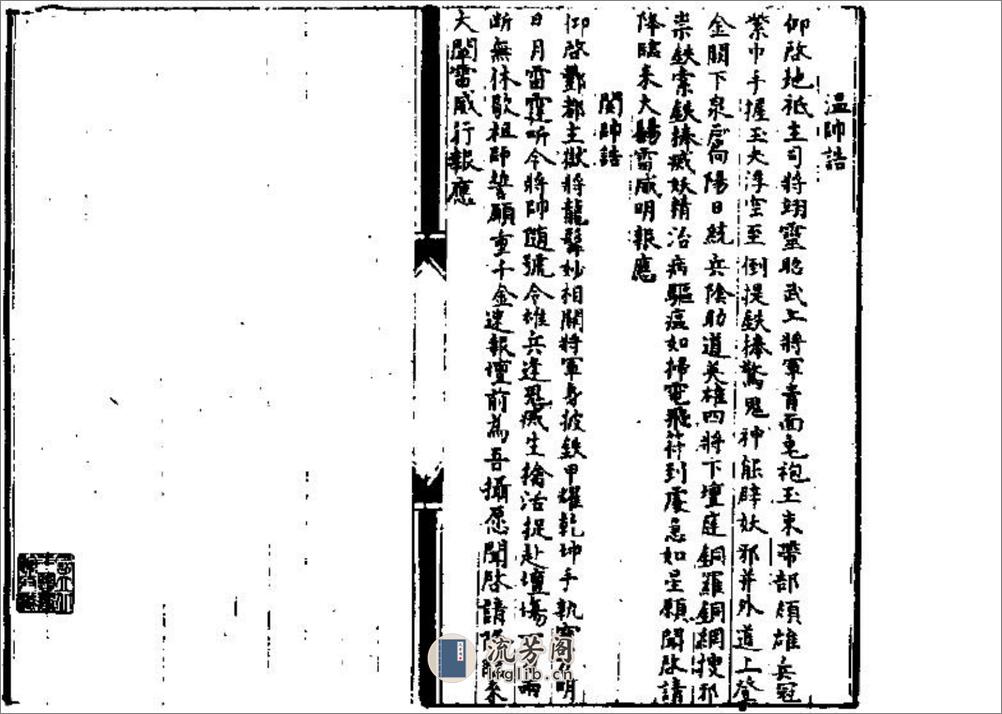 温帥誥
仰啓地祇主司將翊靈昭武上將軍青面皂袍玉束帶部領雄兵冠
紫巾手握玉天浮空至倒提鉄棒驚鬼神能辟妖邪并外道上登
金闕下泉扃向陽日統兵陰助道英雄四將下壇庭銅羅銅網搜邪
祟鉄索鉄捧滅妖精治病驅瘟如掃電飛符到處急如星願聞啓請
降臨来大賜雷威明報應
関帥誥
仰啓酆都主獄將龍髯妙相關將軍身披鉄甲耀乾坤手執寶 明
日月雷霆听令將帥隨號令雄兵逢鬼滅生擒活捉赴壇塲 雨
断無休歇祖師誓願重千金速報壇前為吾攝愿聞啓請降 来
大闡雷威行報應
流芳阁
lfglib.cn